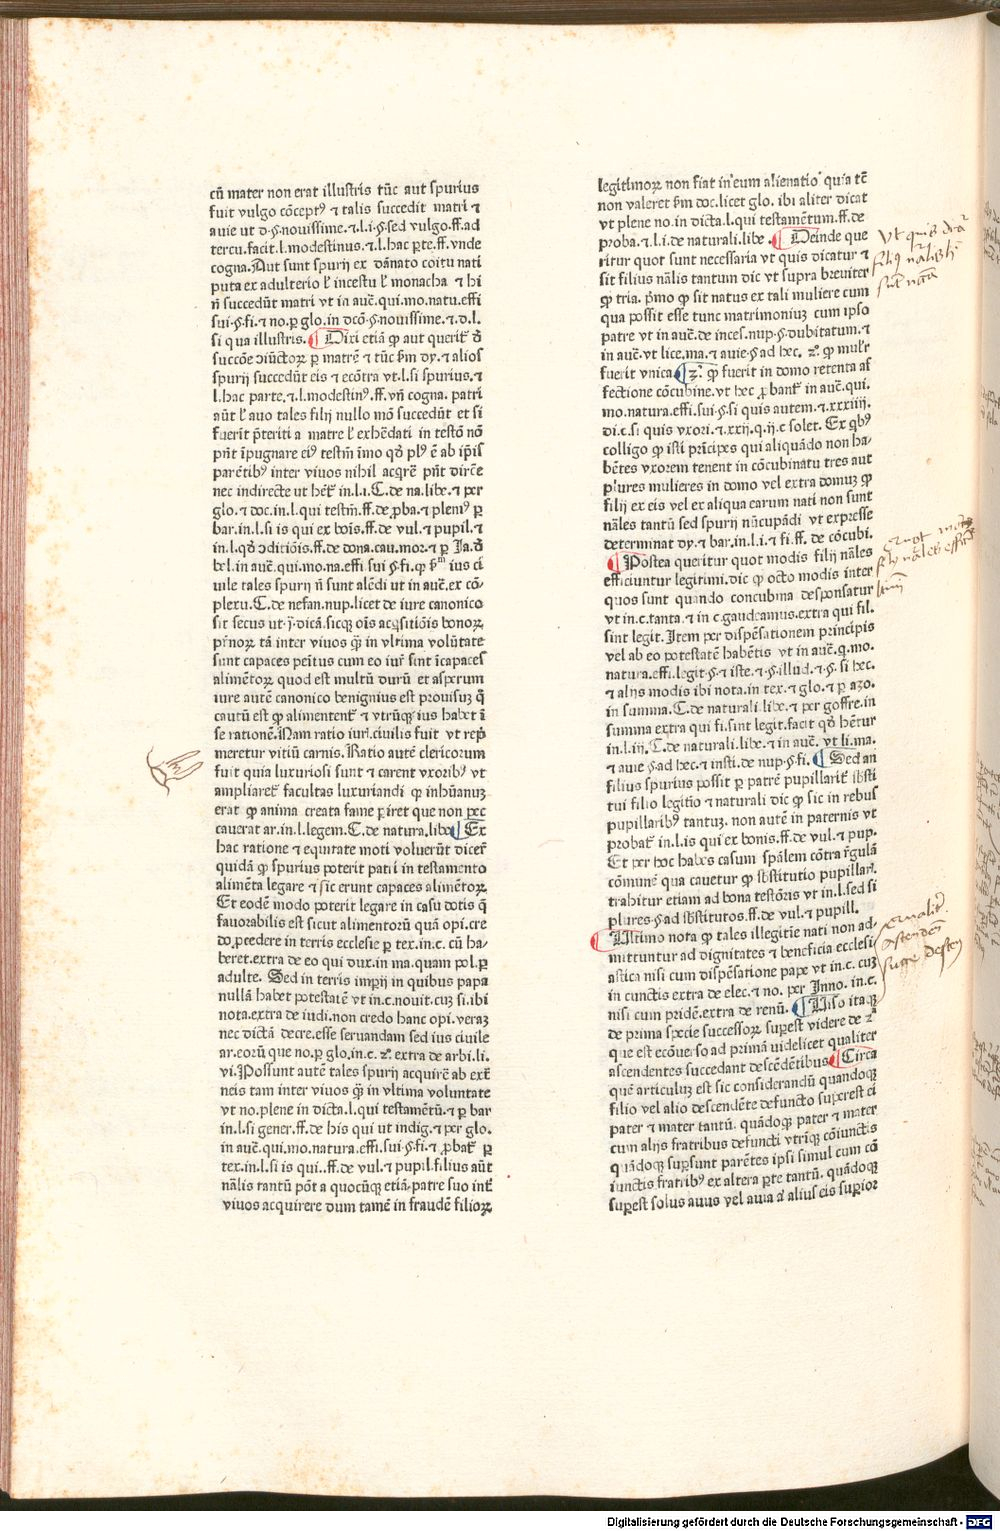 cū mater non erat illustris tūc aut spurius
fuit vulgo cōceptꝰ ⁊ talis succedit matri ⁊
auie ut d.§.nouissime.⁊.l.i.§.sed vulgo.ff.ad
tercu.facit.l.modestinus.⁊.l.hac ꝑte.ff.vnde
cogna.Aut sunt spurij ex dānato coitu nati
puta ex adulterio ł incestu ł monacha ⁊ hi
n̄ succedūt matri vt in auē.qui.mo.natu.effi
sui.§.fi.⁊ no.ꝑ glo.in dcō.§.nouissime.⁊.d.l.
si qua illustris. Dixi etiā ꝙ aut querit᷑ đ
succōe ↄiūctoꝝ ꝑ matrē ⁊ tūc ẜm dy.⁊ alios
spurij succedūt eis ⁊ ecōtra vt.l.si spurius.⁊
l.hac parte.⁊.l.modestinꝰ.ff.vn̄ cogna. patri
aūt ł auo tales filij nullo mō succedūt et si
fuerīt p̄teriti a matre ł exhēdati in testō nō
pn̄t īpugnare eiꝰ testm̄ īmo qđ plꝰ ē ab ip̄is
parētibꝰ inter viuos nihil acqrē pn̄t dircē
nec indirecte ut hēt᷑ in.l.i.C.de na.libe.⁊ per
glo.⁊ doc.in.l.qui testm̄.ff.de ꝓba.⁊ pleniꝰ ꝑ
bar.in.l.si is qui ex bōis.ff.de vul.⁊ pupil.⁊
in.l.qđ ↄditiōis.ff.de dona.cau.mor.⁊ ꝑ Ja.đ
bel.in auē.qui.mo.na.effi.sui §.fi.ꝙ ẜm ius ci
uile tales spurij n̄ sunt alēdi ut in auē.ex cō⸗
plexu.C.de nefan.nup.licet de iure canonico
sit secus ut.j.dicā.sicqꝫ oīs acq̄sitiōis bonoꝝ
pr̄noꝝ tā inter viuos q̄ꝫ in vltima volūtate
sunt capaces pēitus cum eo iur̄ sint īcapaces
alimētoꝝ quod est multū durū et asperum
iure autē canonico benignius est prouisuꝫ q̄
cautū est ꝙ alimentent᷑ ⁊ vtrūqꝫ ius habet ī
se rationē.Nam ratio iuri.ciuilis fuit vt rep̄
meretur vitiū carnis.Ratio autē clericorum
fuit quia luxuriosi sunt ⁊ carent vxoribꝰ vt
ampliaret᷑ facultas luxuriandi ꝙ inhūanuꝫ
erat ꝙ anima creata fame ꝑiret que non pec
cauerat ar.in.l.legem.C.de natura.libe Ex
hac ratione ⁊ equitate moti voluerūt dicer̄
quidā ꝙ spurius poterit pati in testamento
alimēta legare ⁊ sic erunt capaces alimētoꝝ
Et eodē modo poterit legare in casu dotis q̄
fauorabilis est sicut alimentorū quā opi.cre
do ꝓcedere in terris ecclesie ꝑ tex.in.c. cū ha⸗
beret.extra de eo qui dux.in ma.quam pol.ꝑ
adulte. Sed in terris impij in quibus papa
nullā habet potestatē vt in.c.nouit.cuꝫ si.ibi
nota.extra de iudi.non credo hanc opi.veraꝫ
nec dictā decre.esse seruandam sed ius ciuile
ar.eorū que no.ꝑ glo.in.c. 2º. extra de arbi.li.
vi.Possunt autē tales spurij acquirē ab extē
neis tam inter viuos q̄ꝫ in vltima voluntate
vt no.plene in dicta.l.qui testamētū.⁊ ꝑ bar
in.l.si gener.ff.de his qui ut indig.⁊ per glo.
in auē.qui.mo.natura.effi.sui.§.fi.⁊ ꝓbat᷑ ꝑ
tex.in.l.si is qui..ff.de vul.⁊ pupil.filius aūt
nālis tantū pōt a quocūqꝫ etiā.patre suo int̄
viuos acquirere dum tamē in fraudē filioꝝ
legitimoꝝ non fiat in eum alienatio quia tē
non valeret ẜm doc.licet glo. ibi aliter dicat
vt plene no.in dicta.l.qui testamētum.ff.de
proba.⁊.l.i.de naturali.libe. Deinde que
ritur quot sunt necessaria vt quis dicatur ⁊
sit filius nālis tantum dic vt supra breuiter
ꝙ tria. pⁱmo ꝙ sit natus ex tali muliere cum
qua possit esse tunc matrimoniuꝫ cum ipso
patre vt in auē.de inces.nup.§.dubitatum.⁊
in auē.vt lice.ma.⁊ auie.§.ad hec. 2º. ꝙ mulr̄
fuerit vnica 3º. ꝙ fuerit in domo retenta af
fectione cōcubine.vt hec ꝓbant᷑ in auē.qui.
mo.natura.effi.sui.§.si quis autem.⁊.xxxiiij.
di.c.si quis vxori.⁊.xxij.q.ij.c solet. Ex qbꝰ
colligo ꝙ isti prīcipes qui aliquādo non ha⸗
bētes vxorem tenent in cōcubinatu tres aut
plures mulieres in domo vel extra domuꝫ ꝙ
filij ex eis vel ex aliqua earum nati non sunt
nāles tantū sed spurij nūcupādi vt expresse
determinat dy.⁊ bar.in.l.i.⁊ fi.ff. de cōcubi.
Postea queritur quot modis filij nāles
efficiuntur legitimi.dic ꝙ octo modis inter
quos sunt quando concubina desponsatur
vt in.c.tanta.⁊ in c.gaudeamus.extra qui fil.
sint legit.Item per dispēsationem principis
vel ab eo potestatē habētis vt in auē.q.mo.
natura.effi.legit.§.⁊ iste.⁊.§.illud.⁊.§. si hec.
⁊ alijs modis ibi nota.in tex.⁊ glo.⁊ ꝑ azo.
in summa.C.de naturali.libe.⁊ per goffre.in
summa extra qui fi.sint legit.facit qđ hētur
in.l.iij.C.de naturali.libe.⁊ in auē. vt li.ma.
⁊ auie §.ad hec.⁊ insti.de nup.§.fi. Sed an
filius spurius possit ꝑ patrē pupillarit᷑ sb̄sti
tui filio legitio ⁊ naturali dic ꝙ sic in rebus
pupillaribꝰ tantuꝫ. non autē in paternis vt
probat᷑ in.l.is qui ex bonis.ff.de vul.⁊ pup.
Et per hoc habes casum spālem cōtra r̄gulā
cōmunē qua cauetur ꝙ sb̄stitutio pupillar̄.
trahitur etiam ad bona testōris vt in.l.sed si
plures.§.ad sb̄stitutos.ff.de vul.⁊ pupill.
Ultimo nota ꝙ tales illegitīe nati non ad⸗
mittuntur ad dignitates ⁊ beneficia ecclesi
astica nisi cum dispēsatione pape vt in.c. cuꝫ
in cunctis extra de elec.⁊ no. per Inno. in.c.
nisi cum pridē.extra de renū. Uiso itaqꝫ
de prima specie successoꝝ suꝑest videre de 2ª
que est ecōuerso ad primā videlicet qualiter
ascendentes succedant descēdētibus Circa
quē articuluꝫ est sic considerandū quandoqꝫ
filio vel alio descendēte defuncto superest ei
pater ⁊ mater tantū. quādoqꝫ pater ⁊ mater
cum alijs fratribus defuncti vtriqꝫ cōiunctis
quādoqꝫ suꝑsunt parētes ipsi simul cum cō
iunctis fratribꝰ ex altera ꝑte tantū. quādoqꝫ
suꝑest solus auus vel auia aͭ alius eis suꝑior
Digitalisierung gefördert durch die Deutsche Forschungsgemeinschaft - DFG